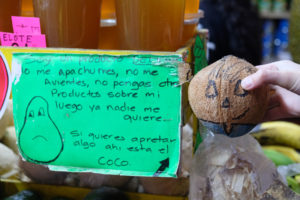 ELOTE
No me apachurres, no me
Avientes, no pongas otros
Productos sobre mi
luego ya nadie me
quiere...
Si quieres apretar
algo ahi esta el
COCO.